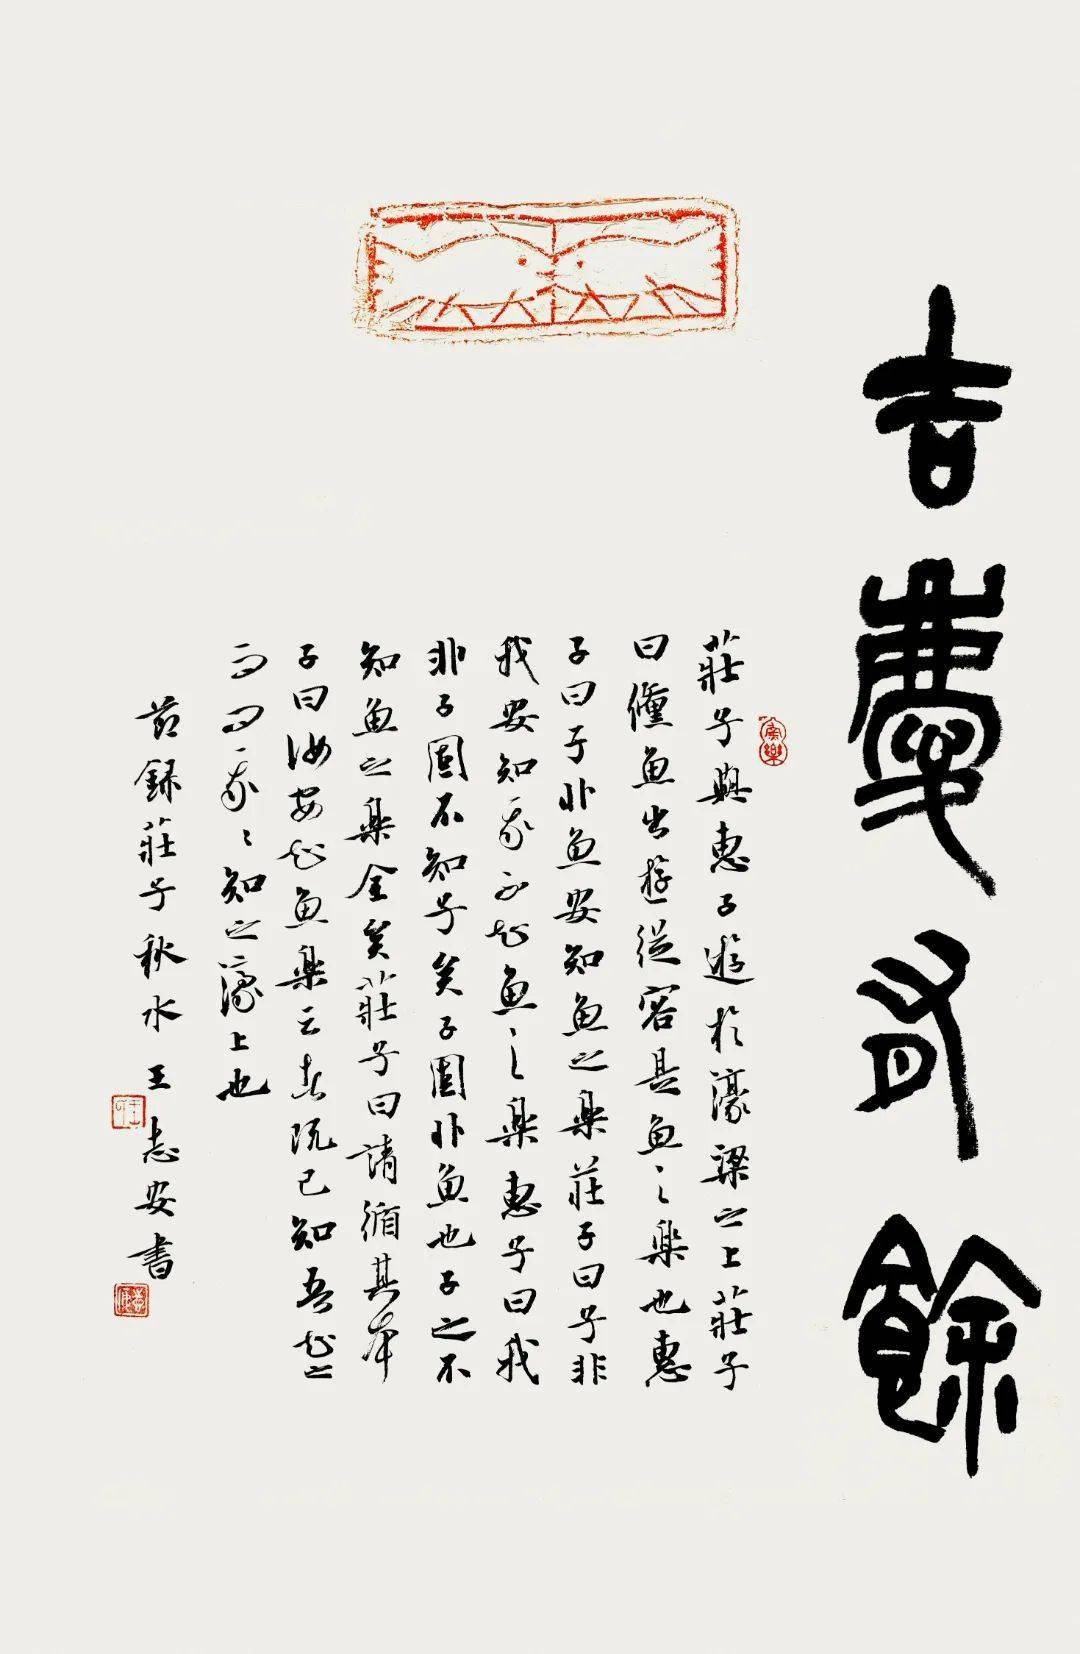 吉慶有餘
莊子與惠子遊於濠梁之上莊子
曰儵魚出遊從容是魚之樂也惠
子曰子非魚安知魚之樂莊子曰子非
我安知我不知魚之樂惠子曰我
非子固不知子矣子固非魚也子之不
知魚之樂全矣莊子曰請循其本
子曰汝安知魚樂云者既已知吾知之
而問我〻知之濠上也
節録莊子秋水 王志安書